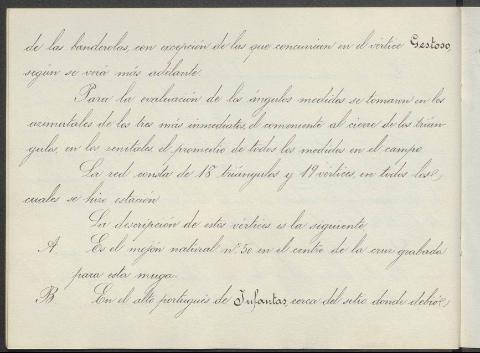 de las banderolas, con excepción de las que concurrian en el vértice Gestoso,
según se verá más adelante.
Para la evaluación de los ángulos medidos se tomaron en los
azimutales de los tres más inmediatos, el conveniente al cierre de los trián-
gulos, en los zenitales el promedio de todos los medidos en el campo.
La red consta de 18 triángulos y 19 vértices, en todos los
cuales se hizo estación.
La descripción de estos vértices es la siguiente
A Es el mojón natural nº 50 en el centro de la cruz grabada
para esta muga.
B En el alto portugués de Infantas, cerca del sitio donde debió